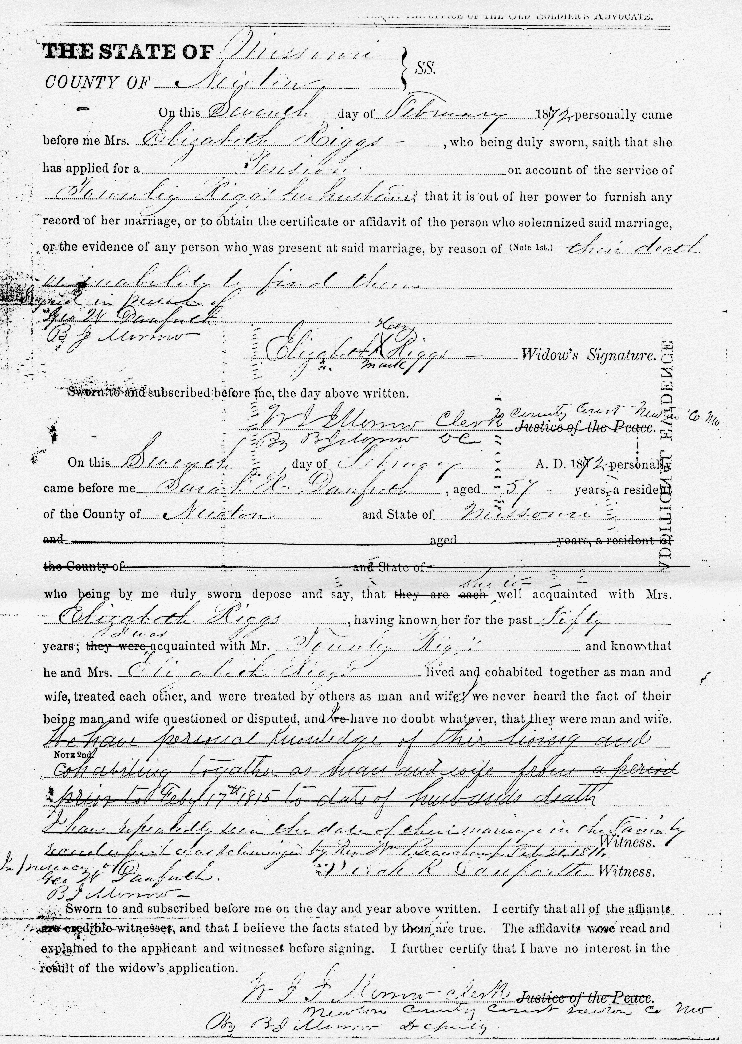 OFFICE OF THE OLD SOLDIER'S ADVOCATE.
THE STATE OF Missouri
COUNTY OF Newton } SS.
On this Seventh day of February 1872 personally came
before me Mrs. Elizabeth Riggs, who being duly sworn, saith that she
has applied for a Pension on account of the service of
Townly Riggs her husband; that it is out of her power to furnish any
record of her marriage, or to obtain the certificate or affidavit of the person who solemnized said marriage,
or the evidence of any person who was present at said marriage, by reason of (Note 1st.) their death
or inability to find them
signed in presence of
Geo W Danforth
B J Morrow
her
Elizabeth X Riggs Widow's Signature.
mark
Sworn to and subscribed before me, the day above written.
W J Morrow Clerk County Court Newton Co Mo Justice of the Peace.
By B J Morrow DC
On this Seventh day of February A. D. 1872 personally
came before me Sarah R Danforth, aged 57 years, a resident
of the County of Newton and State of Missouri
and aged years, a resident of
the County of and State of
she is
who being by me duly sworn depose and say, that they are each well acquainted with Mrs.
Elizabeth Riggs, having known her for the past Fifty
I was
years; they were acquainted with Mr. Townly Riggs and know that
he and Mrs. Elizabeth Riggs lived and cohabited together as man and
wife, treated each other, and were treated by others as man and wife; we never heard the fact of their
being man and wife questioned or disputed, and we have no doubt whatever, that they were man and wife.
We have personal knowledge of their living and
NOTE 2nd.
cohabiting together as man and wife from a period
prior to Feby 17th 1815 to date of husbands death
I have repeatedly seen the date of their marriage in the Family
record Witness.
In presence of
Geo W Danforth Sarah R Danforth Witness.
B J Morrow
Sworn to and subscribed before me on the day and year above written. I certify that all of the affiants
are credible witnesses, and that I believe the facts stated by them are true. The affidavits were read and
explained to the applicant and witnesses before signing. I further certify that I have no interest in the
result of the widow's application.
W J Morrow Clerk Justice of the Peace.
Newton County Court Newton Co Mo
By B J Morrow Deputy
ADDITIONAL EVIDENCE